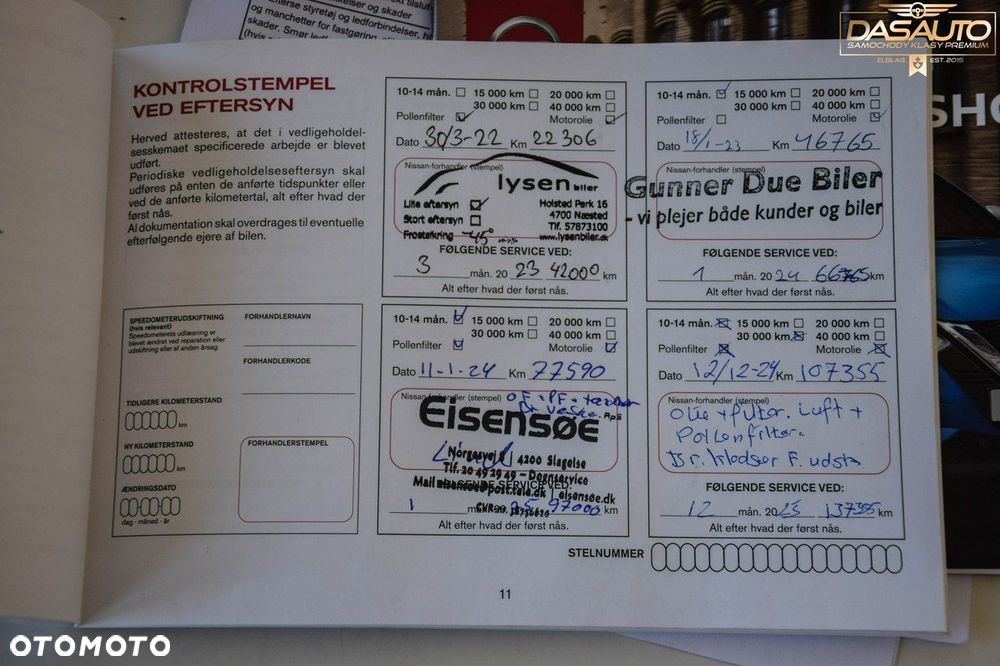 eskemitteiser og skader
æfterse styretøj og ledforbindelser,
og manchetter for fastgøring, slitage
skader. Smør led
DASAUTO
SAMOCHODY KLASY PREMIUM
ELBLĄG EST. 2015
SHO
KONTROLSTEMPEL
VED EFTERSYN
Herved attesteres, at det i vedligeholdel-
sesskemaet specificerede arbejde er blevet
udført.
Periodiske vedligeholdelseseftersyn skal
udføres på enten de anførte tidspunkter eller
ved de anførte kilometertal, alt efter hvad der
først nås.
Al dokumentation skal overdrages til eventuelle
efterfølgende ejere af bilen.
10-14 mån. 15 000 km 20 000 km
30 000 km 40 000 km
Pollenfilter Motorolie
Dato 30/3-22 Km 22 306
Nissan-forhandler (stempel)
lysen biler
Lille eftersyn Holsted Park 16
Stort eftersyn 4700 Næsted
Frostsikring -45° Tlf. 57873100
www.lysenbiler.dk
FØLGENDE SERVICE VED:
3 mån. 20 23 42000 km
Alt efter hvad der først nås.
10-14 mån. 15 000 km 20 000 km
30 000 km 40 000 km
Pollenfilter Motorolie
Dato 18/1-23 Km 46765
Nissan-forhandler (stempel)
Gunner Due Biler
- vi plejer både kunder og biler
FØLGENDE SERVICE VED:
1 mån. 20 24 66765 km
Alt efter hvad der først nås.
SPEEDOMETERUDSKIFTNING
(hvis relevant)
Speedometerets udlæsning er
blevet ændret ved reparation eller
udskiftning eller af anden årsag.
FORHANDLERNAVN
FORHANDLERKODE
TIDLIGERE KILOMETERSTAND
km
NY KILOMETERSTAND
km
ÆNDRINGSDATO
dag - måned - år
FORHANDLERSTEMPEL
10-14 mån. 15 000 km 20 000 km
30 000 km 40 000 km
Pollenfilter Motorolie
Dato 11-1-24 Km 77590
Nissan-forhandler (stempel)
OF + PF +
Br. Væske.
Eisensøe ApS
Norgesvej 8 | 4200 Slagelse
Tlf. 20 49 29 49 - Døgnservice
Mail eisensoe@post.tele.dk | eisensøe.dk
FØLGENDE SERVICE VED:
1 mån. 20 25 97000 km
Alt efter hvad der først nås.
10-14 mån. 15 000 km 20 000 km
30 000 km 40 000 km
Pollenfilter Motorolie
Dato 12/12-24 Km 107355
Nissan-forhandler (stempel)
Olie + filter. Luft +
Pollenfilter.
Br. klodser F. udsk
FØLGENDE SERVICE VED:
12 mån. 20 25 137355 km
Alt efter hvad der først nås.
STELNUMMER
11
OTOMOTO